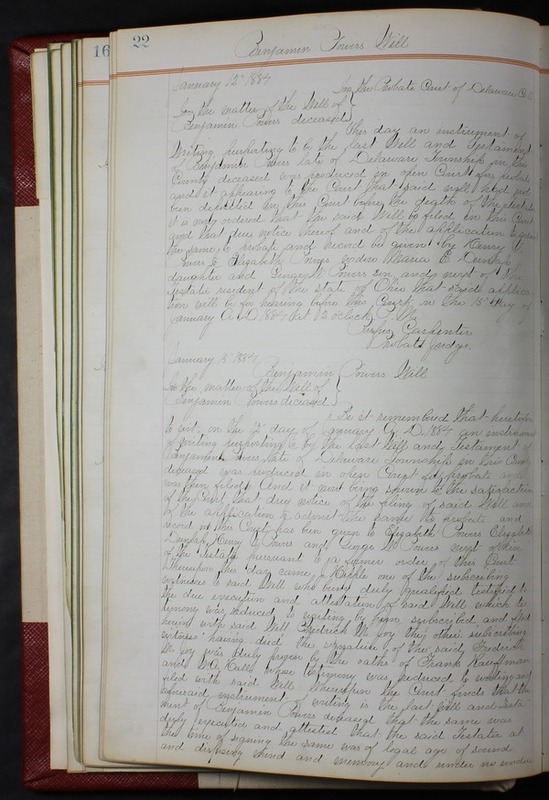 16
22
Benjamin Powers Will
January 12" 1884
In the Probate Court of Delaware Co O
In the matter of the Will of
Benjamin Powers deceased
This day an instrument of
Writing purporting to be the last Will and Testament
of Benjamin Powers late of Delaware Township in this
County deceased was produced in open Court for probate
and it appearing to the Court that said will had not
been deposited in this Court before the death of the testator
it is now ordered that the said Will be filed in this Court
and that due notice thereof and of the application to admit
the same to probate and record be given by Henry
Powers Elizabeth Powers widow Maria E Dunlap
daughter and George W Powers son and next of kin
testate resident of the state of Ohio that said applica
tion will be for hearing before this Court on the 15" day of
January A.D. 1884 at 12 o'clock M
Carpenter
Probate Judge
January 15" 1884
Benjamin Powers Will
In the matter of the Will of
Benjamin Powers deceased
Be it remembered that heretofore
to wit: on the 12" day of January A.D. 1884 an instrument
of writing purporting to be the last Will and Testament of
Benjamin Powers late of Delaware Township in this County
deceased was produced in open Court for probate and
was then filed And it now being shown to the satisfaction
of the Court that due notice of the filing of said Will and
of the application to admit the same to probate and
record in this Court has been given to Elizabeth Powers Elizabeth
Dunlap Henry Powers and George W Powers next of kin
of the testate pursuant to a former order of this Court
Thereupon this day came Kehle one of the subscribing
witnesses to said Will who being duly qualified testified to
the due execution and attestation of said Will which tes
timony was reduced to writing by him subscribed and filed
herein with said Will Fredrick M Joy the other subscribing
witness having died the signature of the said Frederick
M Joy was duly proven by the oaths of Frank Kauffman
and Hall whose testimony was reduced to writing and
filed with said Will Thereupon the Court finds that the
aforesaid instrument of writing is the last will and testa
ment of Benjamin Powers deceased that the same was
duly executed and attested that the said Testate at
the time of signing the same was of legal age of sound
and disposing mind and memory and under no undue